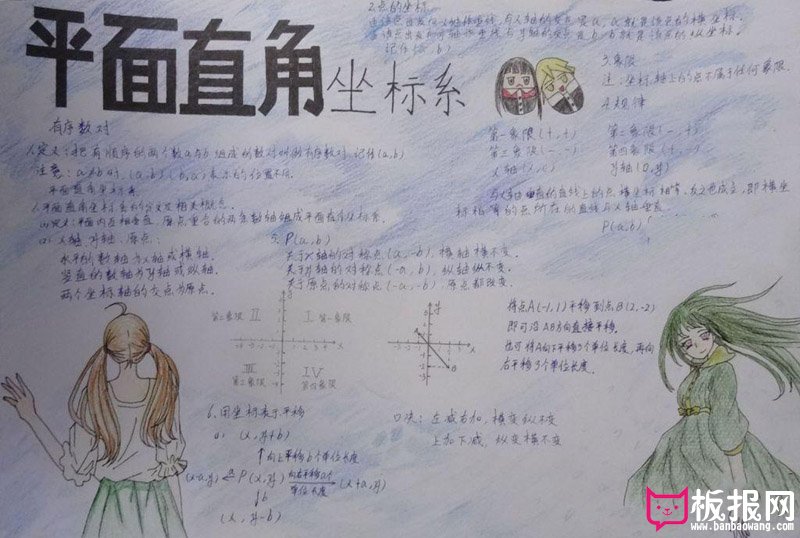 平面直角坐标系
2.点的坐标
记作(a,b)
3.象限
注:坐标轴上的点不属于任何象限.
4.规律
第一象限(+,+) 第二象限(-,+)
第三象限(-,-) 第四象限(+,-)
x轴(x,0) y轴(0,y)
与x轴垂直的直线上的点横坐标相等,反之也成立,即横坐
标相等的点所在的直线与x轴垂直
P(a,b)
有序数对
1.定义:把有顺序的两个数a与b组成的数对叫做有序数对,记作(a,b)
注意:a≠b时,(a,b)(b,a)表示的位置不同.
平面直角坐标系
1.平面直角坐标系的定义及相关概念.
(1)定义:平面内互相垂直,原点重合的两条数轴组成平面直角坐标系.
x轴、y轴、原点:
水平的数轴为x轴或横轴.
竖直的数轴为y轴或纵轴.
两个坐标轴的交点为原点.
5. P(a,b)
关于x轴的对称点(a,-b),横轴横不变.
关于y轴的对称点(-a,b),纵轴纵不变.
关于原点的对称点(-a,-b),原点都改变.
第二象限 II I 第一象限
III IV
第三象限 第四象限
将点A(-1,1)平移到点B(2,-2)
即可沿AB方向直接平移.
也可将A向下平移3个单位长度,再向
右平移3个单位长度.
6.用坐标表示平移
(x,y+b)
↑向上平移b个单位长度
(x-a,y) ← P(x,y) 向右平移a个单位长度→ (x+a,y)
↓b
(x,y-b)
口决:左减右加,横变纵不变
上加下减,纵变横不变
板报网
www.banbaowang.com